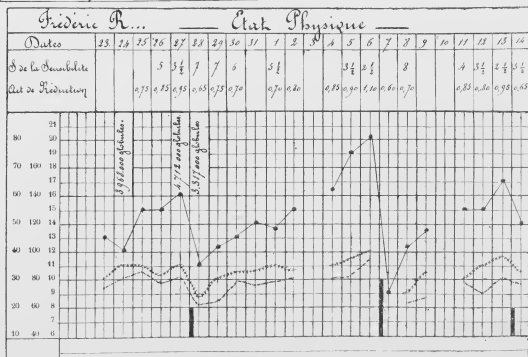 Frédéric R... — Etat Physique —
Dates 23 24 25 26 27 28 29 30 31 1 2 3 4 5 6 7 8 9 10 11 12 13 14
S de la Sensibilité 5 3½ 7 7 6 5½ 3½ 2½ 8 4 3½ 2½ 5½
Act de Réduction 0,75 0,85 0,95 0,65 0,75 0,70 0,70 0,80 0,85 0,90 1,10 0,60 0,70 0,85 0,80 0,95 0,65
3 968 000 globules.
4 712 000 globules.
3 317 000 globules.
21
80 20
19
70 160 18
17
60 140 16
15
50 120 14
13
40 100 12
11
30 80 10
9
20 60 8
7
10 40 6